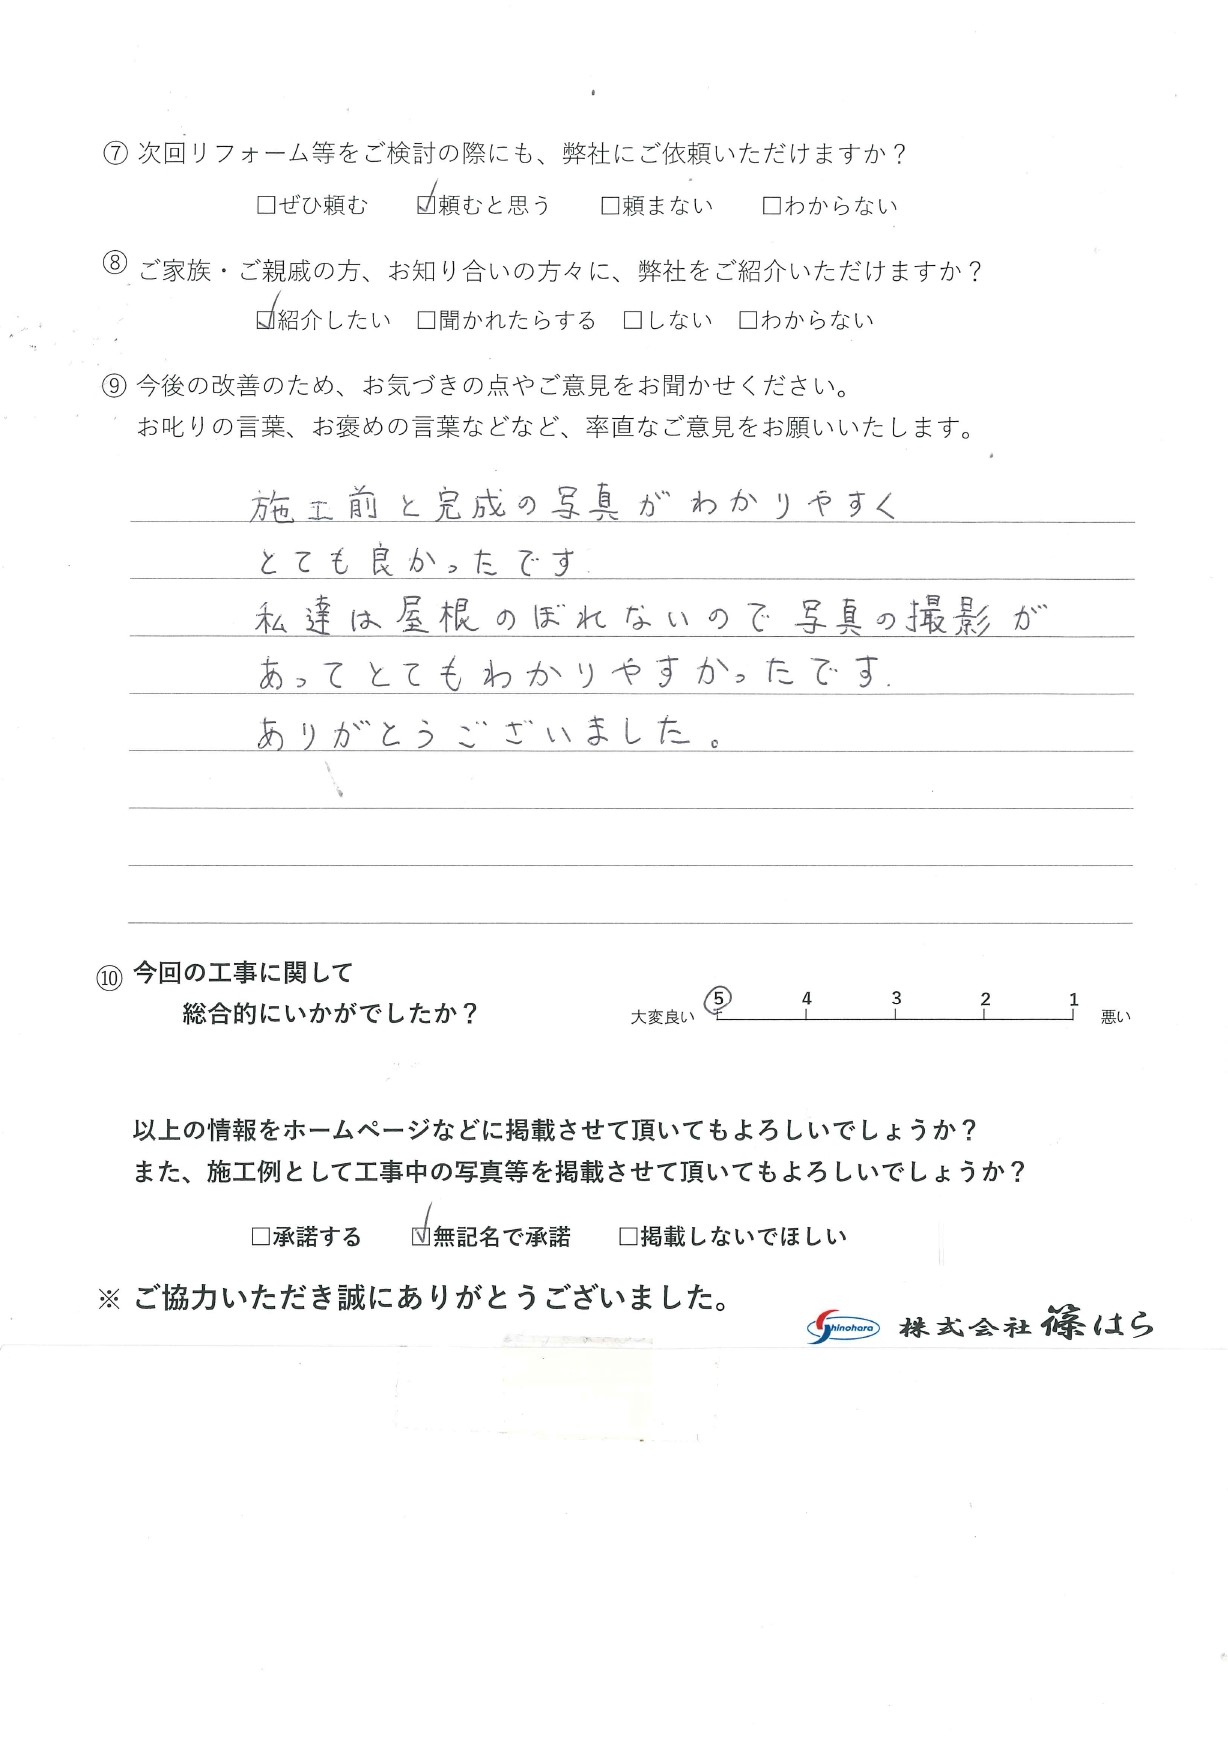 ⑦ 次回リフォーム等をご検討の際にも、弊社にご依頼いただけますか？
□ぜひ頼む ☑頼むと思う □頼まない □わからない
⑧ ご家族・ご親戚の方、お知り合いの方々に、弊社をご紹介いただけますか？
☑紹介したい □聞かれたらする □しない □わからない
⑨ 今後の改善のため、お気づきの点やご意見をお聞かせください。
お叱りの言葉、お褒めの言葉などなど、率直なご意見をお願いいたします。
施工前と完成の写真がわかりやすく
とても良かったです.
私達は屋根のぼれないので写真の撮影が
あってとてもわかりやすかったです.
ありがとうございました。
⑩ 今回の工事に関して
総合的にいかがでしたか？
大変良い 5 4 3 2 1 悪い
以上の情報をホームページなどに掲載させて頂いてもよろしいでしょうか？
また、施工例として工事中の写真等を掲載させて頂いてもよろしいでしょうか？
□承諾する ☑無記名で承諾 □掲載しないでほしい
※ ご協力いただき誠にありがとうございました。
Shinohara 株式会社 篠はら